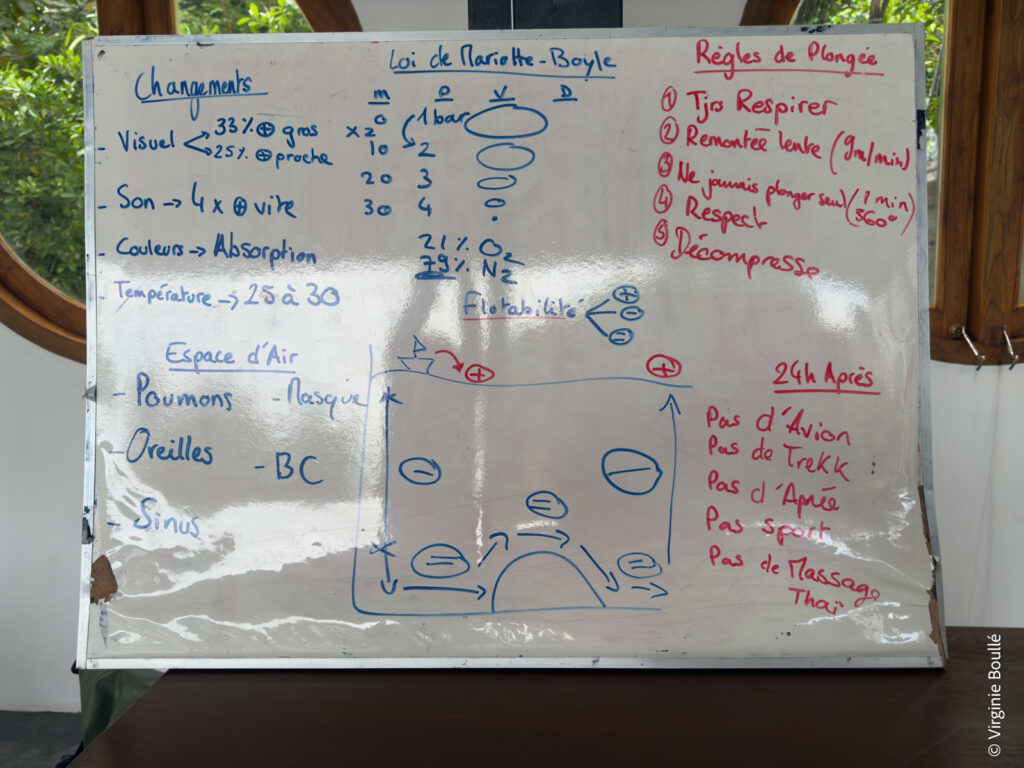 Changements
- Visuel
33% ⊕ gros
25% ⊕ proche
- Son → 4 x ⊕ vite
- Couleurs → Absorption
- Température → 25 à 30
Loi de Mariotte-Boyle
m P V D
0 1 bar
x2
10 2
20 3
30 4
21% O2
79% N2
Règles de Plongée
① Tjrs Respirer
② Remontée lente (9m/min)
③ Ne jamais plonger seul (1 min
360°
④ Respect
⑤ Décompresse
Flotabilité
⊕
⊖
⊜
Espace d'Air
- Poumons - Masque
- Oreilles
- BC
- Sinus
⊕ ⊕
⊖ ⊖
⊜
⊜ ⊜
24h Après
Pas d'Avion
Pas de Trekk
Pas d'Apnée
Pas sport
Pas de Massage
Thaï
© Virginie Boullé